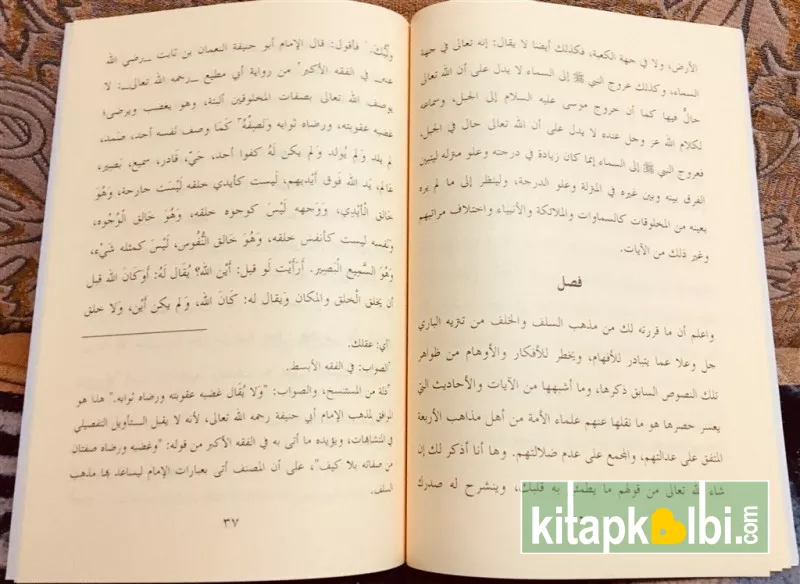 الأرض، ولا في جهة الكعبة، فكذلك أيضا لا يقال: إنه تعالى في جهة
السماء، وكذلك عروج النبي ﷺ إلى السماء لا يدل على أن الله تعالى
حالٌّ فيها كما أن خروج موسى عليه السلام إلى الجبل، وسماعه
لكلام الله عز وجل عنده لا يدل على أن الله تعالى حال في الجبل،
فعروج النبي ﷺ إلى السماء إنما كان زيادة في درجته وعلو منزله ليتبين
الفرق بينه وبين غيره في المنزلة وعلو الدرجة، ولينظر إلى ما لم يره
بعينه من المخلوقات كالسماوات والملائكة والأنبياء واختلاف مراتبهم
وغير ذلك من الآيات.
فصل
واعلم أن ما قررته لك من مذهب السلف والخلف من تنزيه الباري
جل وعلا عما يتبادر للأفهام، ويخطر للأفكار والأوهام من ظواهر
تلك النصوص السابق ذكرها، وما أشبهها من الآيات والأحاديث التي
يعسر حصرها هو ما نقلها عنهم علماء الأمة من أهل مذاهب الأربعة
المتفق على عدالتهم، والمجمع على عدم ضلالتهم. وها أنا أذكر لك إن
شاء الله تعالى من قولهم ما يطمئن به قلبك، وينشرح له صدرك
ولُبُّكَ، فأقول: قال الإمام أبو حنيفة النعمان بن ثابت _رضي الله
عنه_ في الفقه الأكبر من رواية أبي مطيع _رحمه الله تعالى_: لا
يوصف الله تعالى بصفات المخلوقين ألبتة، وهو يغضب ويرضى؛
غضبه عقوبته، ورضاه ثوابه وَنَصِفُهُ كَمَا وصف نفسه أحد، صَمَد،
لم يلد وَلم يُولد وَلم يكن لَهُ كفوا أحد، حَيّ، قَادر، سميع، بَصِير،
عَالم، يَد الله فَوق أَيْديهم، لَيست كأيدي خلقه لَيْسَت جارحة، وَهُوَ
خَالق الْأَيْدِي، وَوَجهه لَيْسَ كوجوه خلقه، وَهُوَ خَالق الْوُجُوه،
وَنَفسه ليست كأنفس خلقه، وَهُوَ خَالق النُّفُوس، لَيْسَ كمثله شَيْء،
وَهُوَ السَّمِيع الْبَصِير. أَرَأَيْت لَو قيل: أَيْن الله؟ يُقَال لَهُ: أَوَكَانَ الله قبل
أن يخلق الْخلق والمكان وَيقال له: كَانَ الله، وَلم يكن أَيْن، وَلَا خلق
أي: عقلك.
الصواب: في الفقه الأبسط.
زلة من المستنسخ، والصواب: "وَلَا يُقَال غضبه عقوبته ورضاه ثوابه." هذا هو
الموافق لمذهب الإمام أبي حنيفة رحمه الله تعالى، لأنه لا يقبل الستأويل التفصيلي
في المتشابهات، ويؤيده ما أتى به في الفقه الأكبر من قوله: "وغضبه ورضاه صفتان
من صفاته بلا كيف"، على أن المصنف أتى بعبارات الإمام ليساعد بها مذهب
السلف.
٣٧
kitapkalbi.com